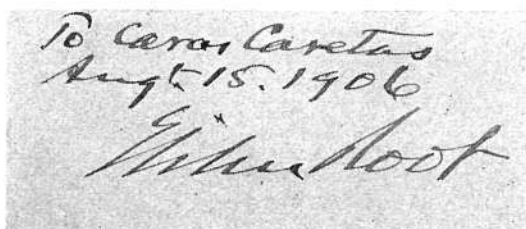 To Caras Caretas
Augt. 15. 1906
Elihu Root